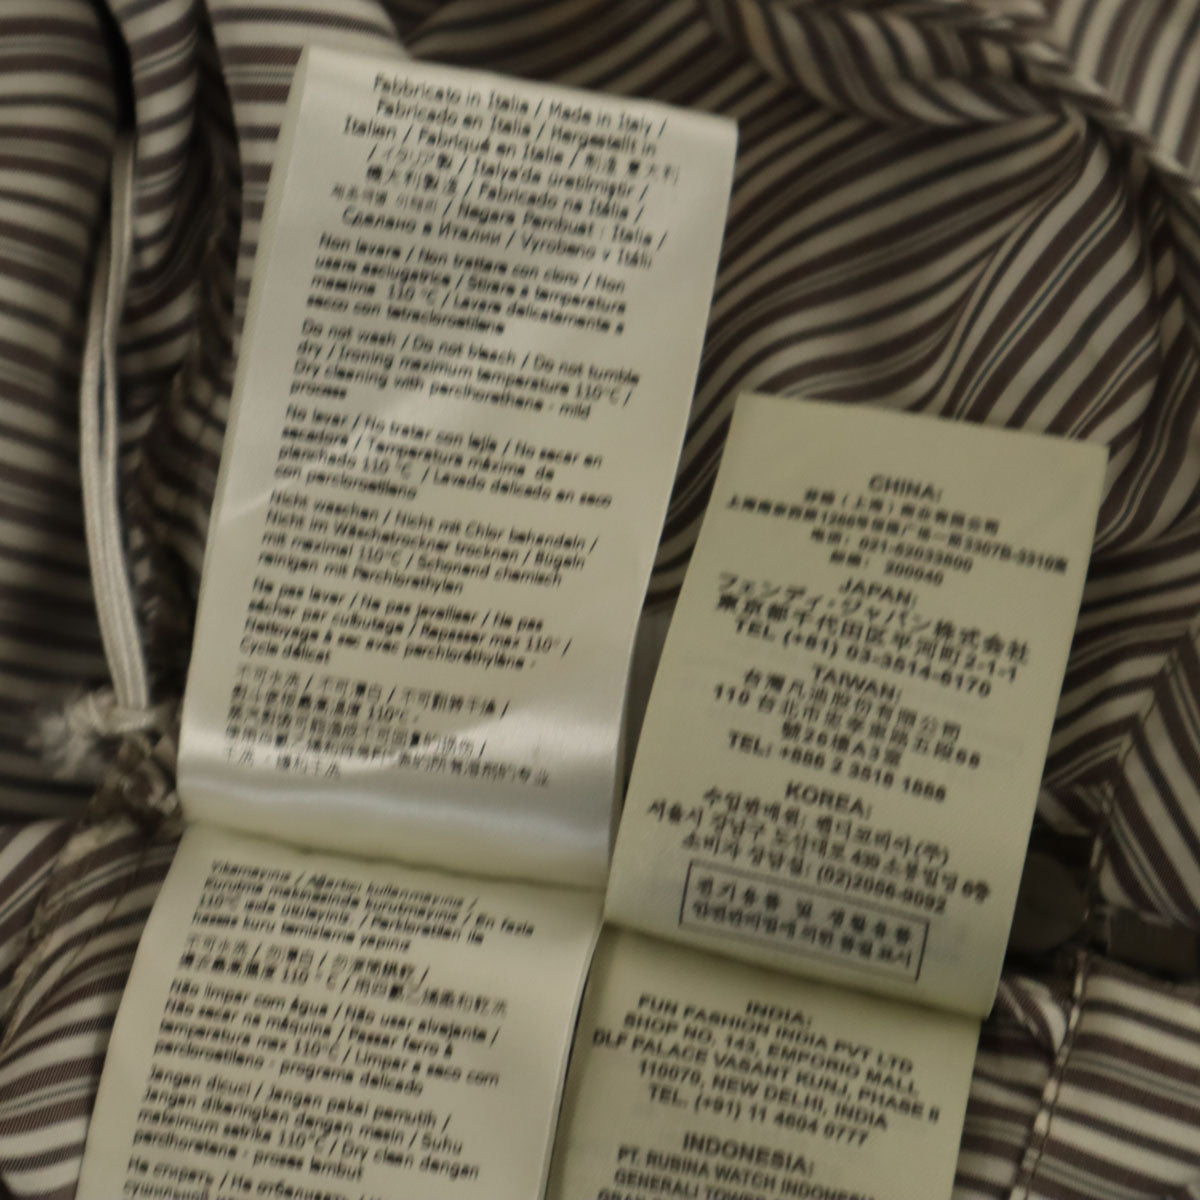 Fabbricato in Italia / Made in Italy /
Fabricado en Italia / Hergestellt in
Italien / Fabriqué en Italia / 制造 意大利
/ イタリア製 / Italya'da üretilmiştir /
義大利製造 / Fabricado na Itália /
이태리 / Negara Pembuat : Italia /
Сделано в Италии / Vyrobeno v Itálii
Non lavare / Non trattare con cloro / Non
usare asciugatrice / Stirare a temperatura
massima 110 °C / Lavare delicatamente a
secco con tetracloroetilene
Do not wash / Do not bleach / Do not tumble
dry / Ironing maximum temperature 110°C /
Dry cleaning with perclhorethene - mild
process
No lavar / No tratar con lejía / No secar en
secadora / Temperatura máxima de
planchado 110 °C / Lavado delicado en seco
con percloroetileno
Nicht waschen / Nicht mit Chlor behandeln /
Nicht im Wäschetrockner trocknen / Bügeln
mit maximal 110°C / Schonend chemisch
reinigen mit Perchlorethylen
Ne pas laver / Ne pas javelliser / Ne pas
sécher par culbutage / Repasser max 110° /
Nettoyage à sec avec perchloréthylène -
Cycle délicat
不可水洗 / 不可漂白 / 不可翻转干燥 /
110°C
Yıkamayınız / Ağartıcı kullanmayınız /
Kurutma makinesinde kurutmayınız / En fazla
110°C ısıda ütüleyiniz. / Perkloretilen ile
hassas kuru temizleme yapınız
不可水洗 / 勿漂白 /
110 °C /
Não limpar com água / Não usar alvejante /
Não secar na máquina / Passar ferro à
temperatura max 110°C / Limpar a seco com
percloroetileno - programa delicado
Jangan dicuci / Jangan pakai pemutih /
Jangan dikeringkan dengan mesin / Suhu
maksimum setrika 110°C / Dry clean dengan
perchloretene - proses lembut
Не стирать / Не отбеливать /
сушильной
CHINA:
（上海）商业有限公司
1266 3307B-3310室
电话: 021-62033800
邮编: 200040
JAPAN:
フェンディ・ジャパン株式会社
東京都千代田区平河町2-1-1
TEL (+81) 03-3514-6170
TAIWAN:
台灣凡迪股份有限公司
110 台北市忠孝東路五段68
號26樓A3室
TEL: +886 2 3518 1688
KOREA:
수입판매원: 펜디코리아(주)
서울시 강남구 도산대로 439 소봉빌딩 6층
소비자 상담실: (02)2056-9092
전기용품 및 생활용품
INDIA:
FUN FASHION INDIA PVT LTD
SHOP NO. 143, EMPORIO MALL
DLF PALACE VASANT KUNJ, PHASE II
110070, NEW DELHI, INDIA
TEL. (+91) 11 4604 0777
INDONESIA:
PT. RUBINA WATCH INDONESIA
GENERALI TOWER